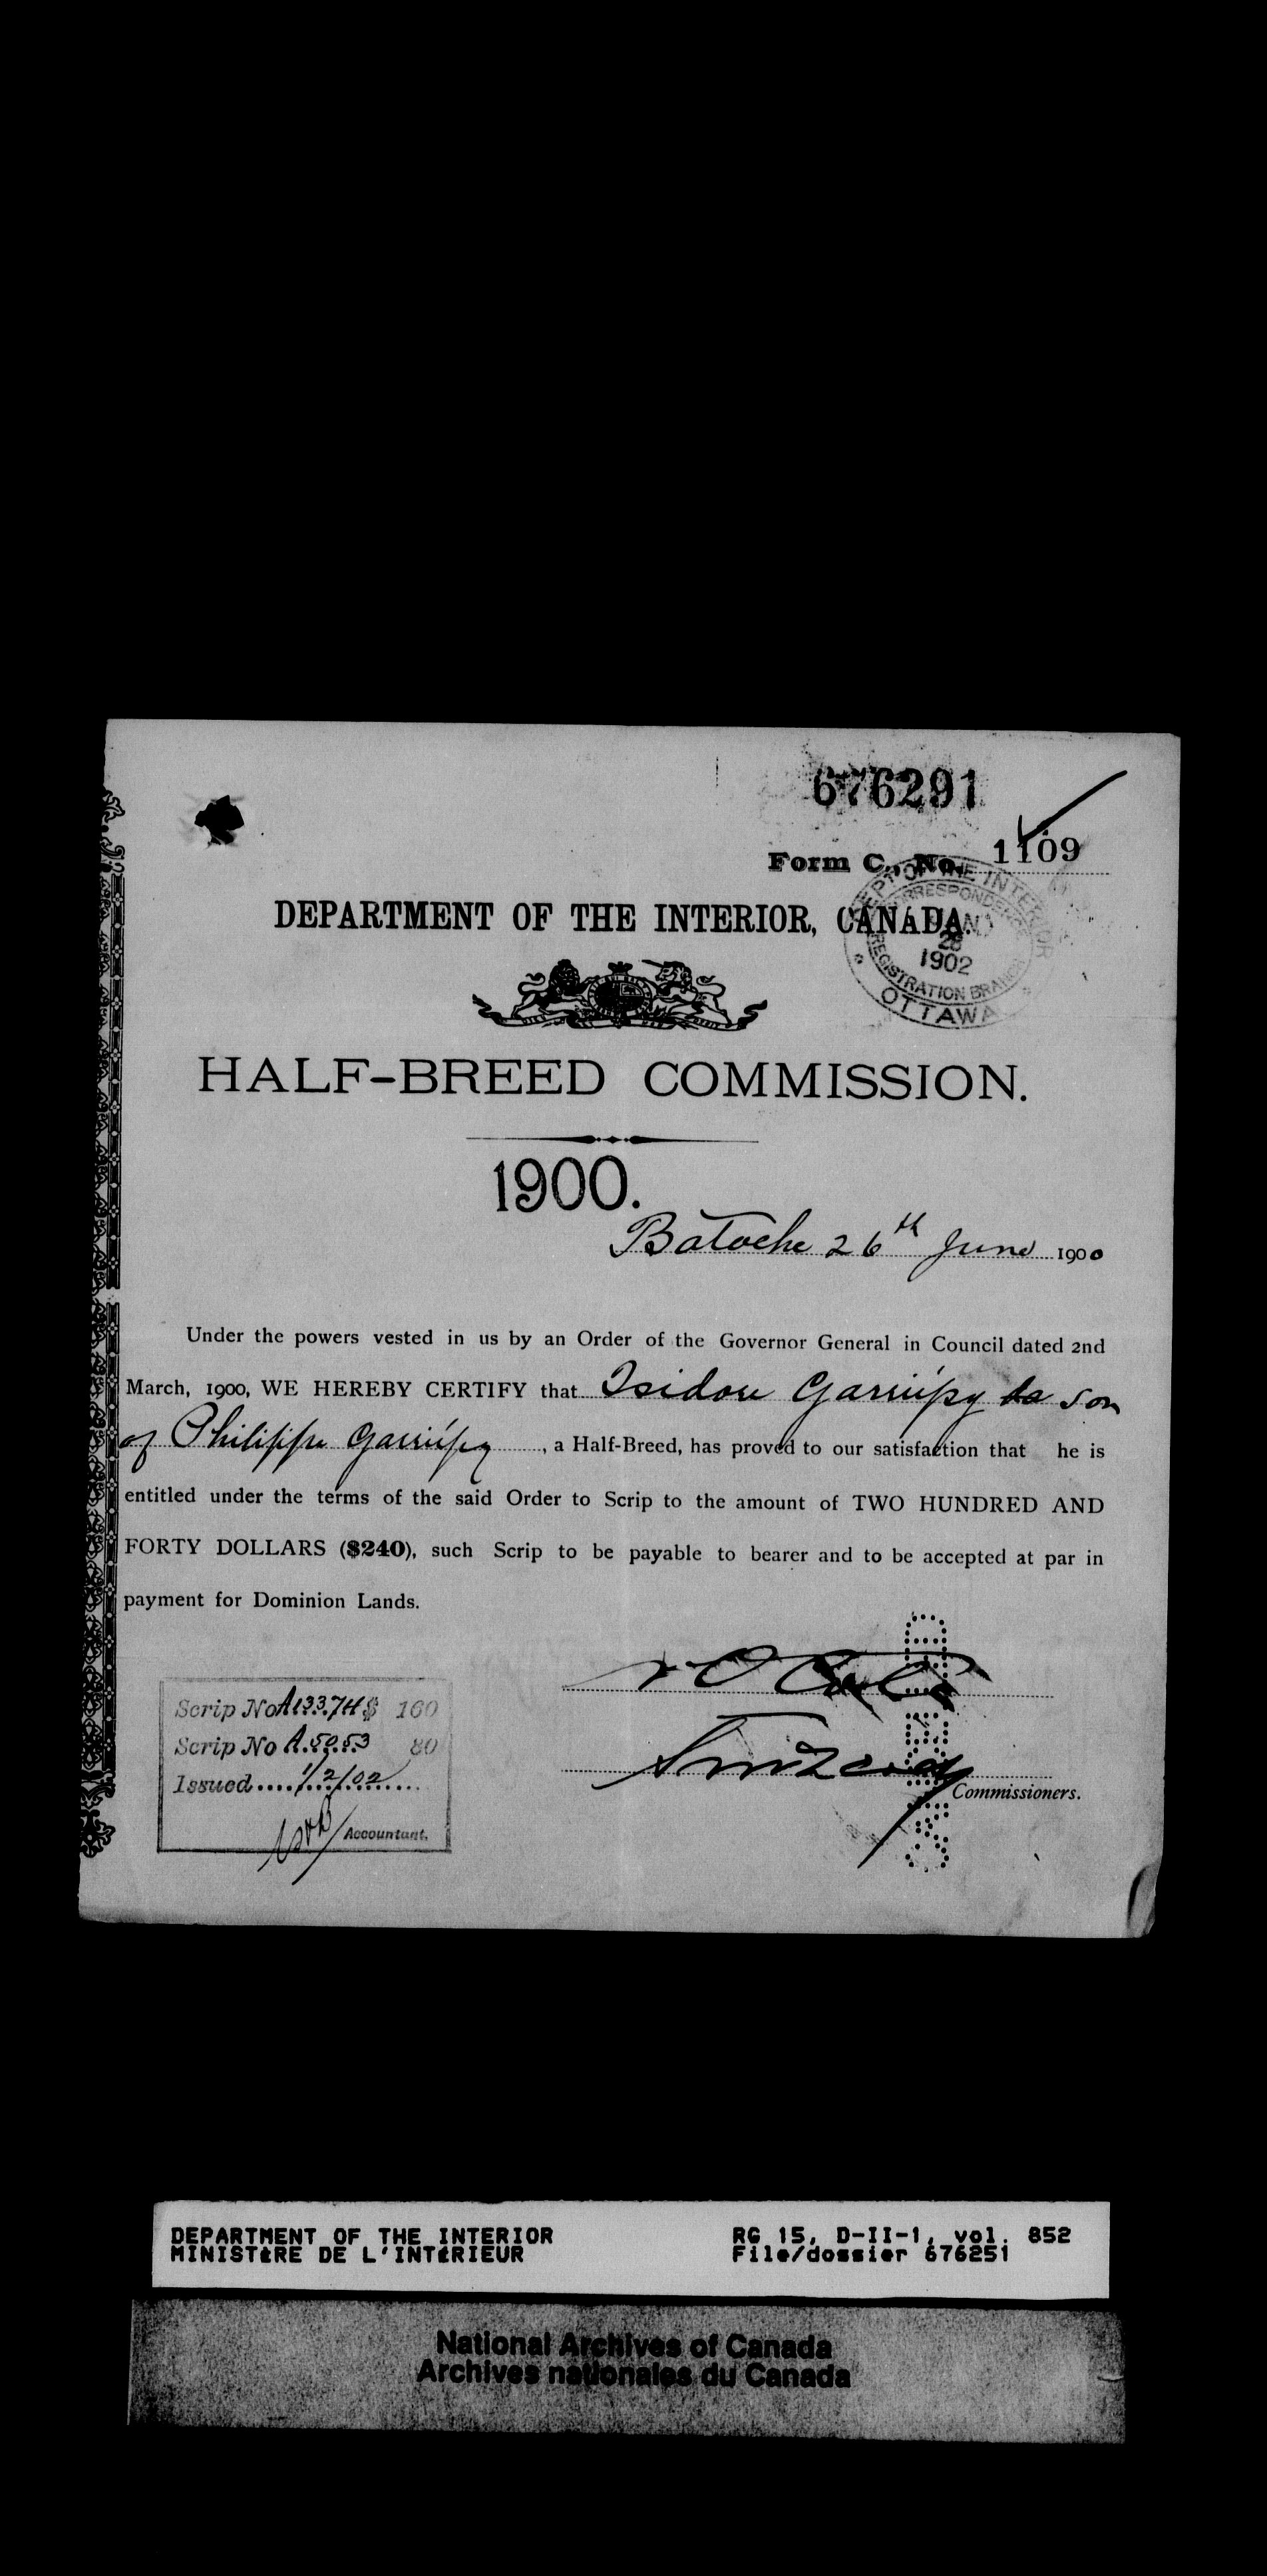 676291
Form C., No. 1109
DEPARTMENT OF THE INTERIOR, CANADA.
DEPT OF THE INTERIOR
CORRESPONDENCE
JAN
28
1902
REGISTRATION BRANCH
OTTAWA
HALF-BREED COMMISSION.
1900.
Batoche 26th June 1900
Under the powers vested in us by an Order of the Governor General in Council dated 2nd
March, 1900, WE HEREBY CERTIFY that Isidore Garriépy son
of Philippe Garriépy, a Half-Breed, has proved to our satisfaction that he is
entitled under the terms of the said Order to Scrip to the amount of TWO HUNDRED AND
FORTY DOLLARS ($240), such Scrip to be payable to bearer and to be accepted at par in
payment for Dominion Lands.
Scrip No A13374 $ 160
Scrip No A.5053 80
Issued....1/2/02....
Accountant.
Commissioners.
DEPARTMENT OF THE INTERIOR
MINISTÈRE DE L'INTÉRIEUR
RG 15, D-II-1, vol. 852
File/dossier 676251
National Archives of Canada
Archives nationales du Canada